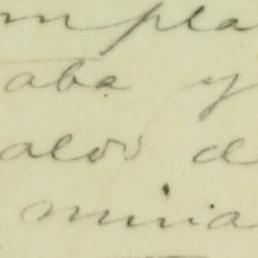 mpla
aba y
alos d
minia